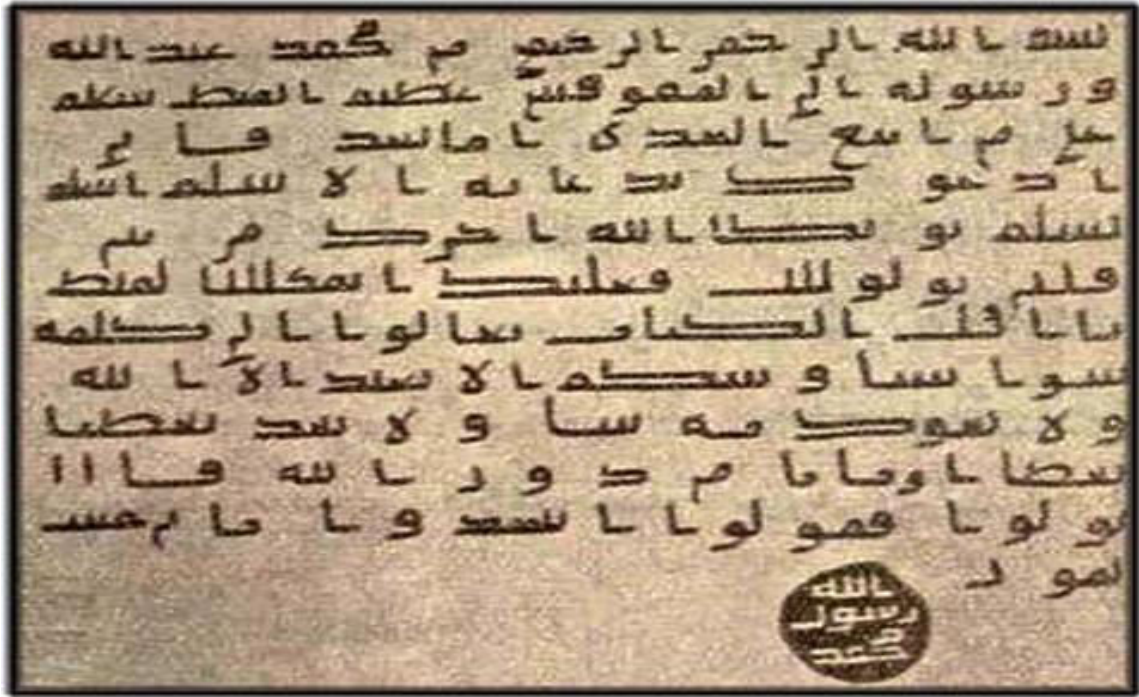 بسم الله الرحمن الرحيم من محمد عبد الله
ورسوله الى المقوقس عظيم القبط سلام
على من اتبع الهدى اما بعد فانى
ادعوك بدعاية الاسلام اسلم
تسلم يوتك الله اجرك مرتين
فان توليت فعليك اثم القبط
يا اهل الكتاب تعالوا الى كلمة
سوا بيننا وبينكم الا نعبد الا الله
ولا نشرك به شيا ولا يتخذ بعضنا
بعضا اربابا من دون الله فان
تولوا فقولوا اشهدوا بانا مس
لمون
الله
رسول
محمد